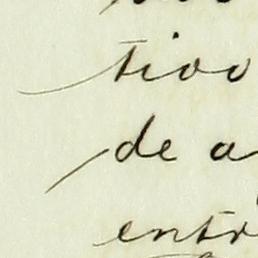 tivo
de a
entr